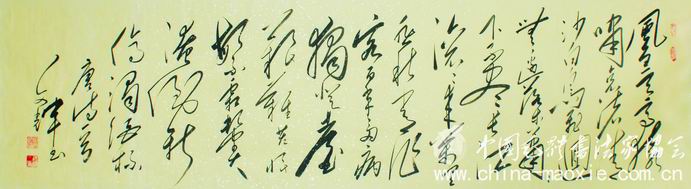 風急天高猿
嘯哀渚清
沙白鳥飛迴
無邊落木蕭蕭下
不盡長江
滾滾來萬里
悲秋常作
客百年多病
獨登臺
艱難苦恨
繁霜鬢
潦倒新
停濁酒杯
唐詩一首
軍書
中国毛体书法家协会
www.china-maoxie.com.cn